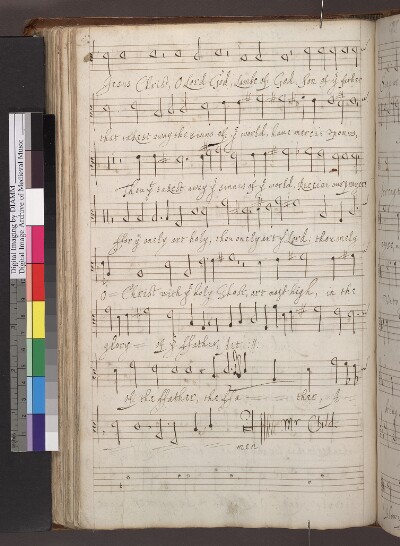 Jesus Christ, O Lord God, Lambe of God, Son of yͤ father
that takest away the sinns of yͤ world, have mercie upon us,
Thou yͭ takest away yͤ sinnes of yͤ world, receive our prayer
For yͧ onely art holy, thou onely art yͤ Lord, thou onely
O Christ with yͤ holy Ghost, art most high, in the
glory of yͤ ffather,
of the ffather, the ffa - - ther, A-
men
Mr Child
Digital Imaging by DIAMM
Digital Image Archive of Medieval Music